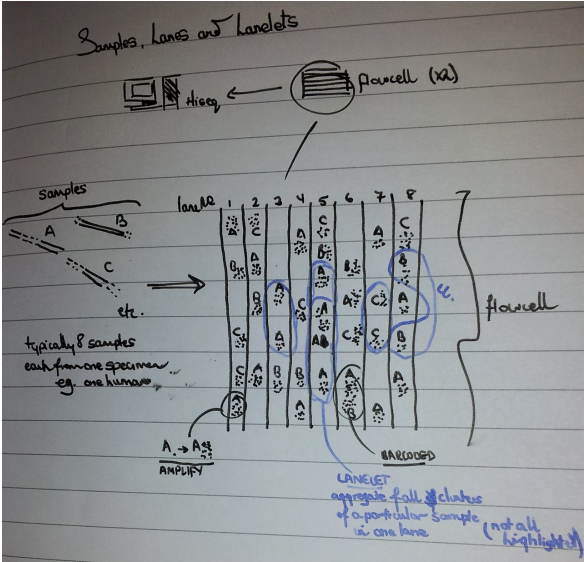 Samples, Lanes and Lanelets
flowcell (x2)
Hiseq
samples
A B
C
etc.
typically 8 samples
each from one specimen
eg. one human
lane 1 2 3 4 5 6 7 8
A C A C A C
B A B A B A
B C A A C A
C A AB C C B
C A B B A A A
A A B A
flowcell
A. → A
AMPLIFY
BARCODED
LANELET
aggregate of all clusters
of a particular sample
in one lane
(not all
highlighted)